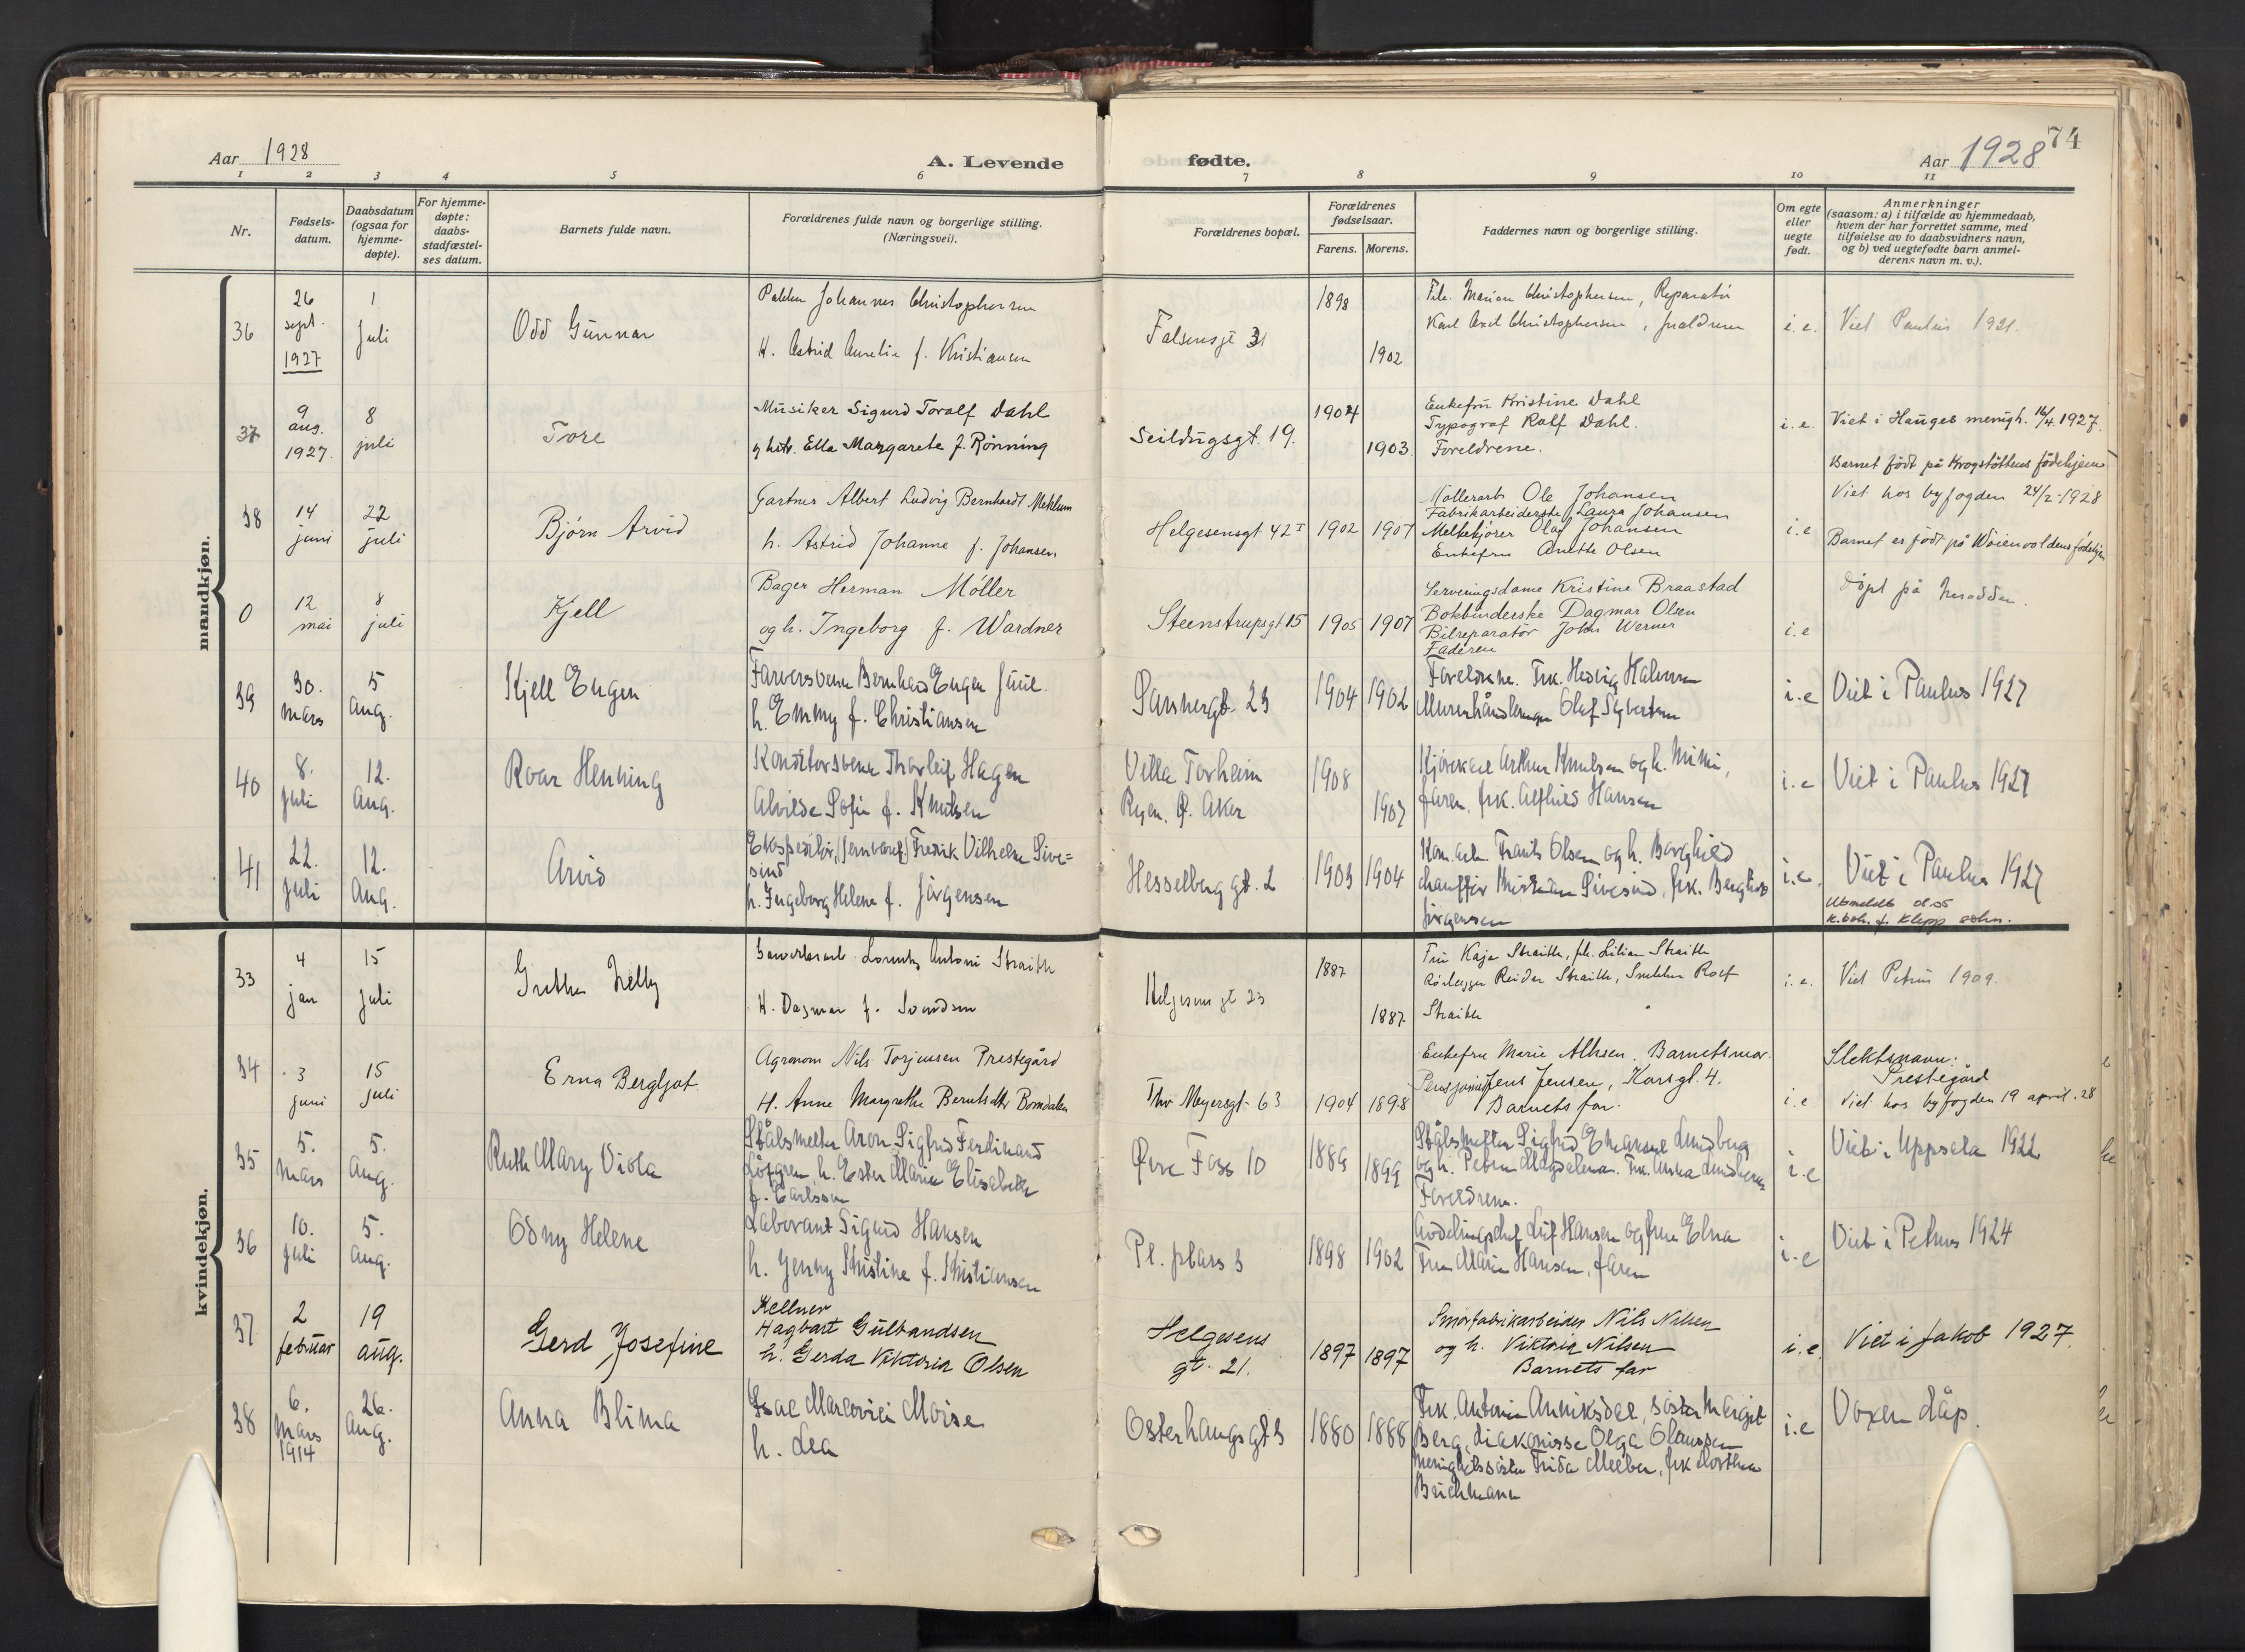 Aar 1928
A. Levende
fødte.
Aar 1928
74
1 2 3 4 5 6 7 8 9 10 11
Nr.
Fødsels-
datum.
Daabsdatum
(ogsaa for
hjemme-
døpte).
For hjemme-
døpte:
daabs-
stadfæstel-
ses datum.
Barnets fulde navn.
Forældrenes fulde navn og borgerlige stilling.
(Næringsvei).
Forældrenes bopæl.
Forældrenes
fødselsaar.
Farens. Morens.
Faddernes navn og borgerlige stilling.
Om egte
eller
uegte
født.
Anmerkninger
(saasom: a) i tilfælde av hjemmedaab,
hvem der har forrettet samme, med
tilføielse av to daabsvidners navn,
og b) ved uegtefødte barn anmel-
derens navn m. v.).
mandkjøn.
36
26
sept.
1927
1
juli
Odd Gunnar
Johannes Christophersen
H. Astrid Aurelie f. Kristiansen
Falsensgt 31
1898
1902
Marion Christophersen, Reparatør
Karl Axel Christophersen, foreldrene
i.e.
Viet Paulus 1921.
37
9
aug.
1927.
8
juli
Tore
Musiker Sigurd Toralf Dahl
og hstr. Ella Margarete f. Rönning
Seildugsgt. 19.
1904
1903.
Enkefru Kristine Dahl
Typograf Rolf Dahl.
Foreldrene.
i.e.
Viet i Hauges menigh. 16/4. 1927.
Barnet födt på Krogstöttens födehjem
38
14
juni
22
juli
Bjørn Arvid
Gartner Albert Ludvig Bernhardt Mehlum
h. Astrid Johanne f. Johansen
Helgesensgt 42 I
1902
1907
Møllerarb. Ole Johansen
Fabrikarbeiderske Laura Johansen
Melkekjører Olaf Johansen
Enkefru Anette Olsen
i.e
Viet hos byfogden 24/2-1928
Barnet er født på Wøienvoldens fødehjem
0
12
mai
8
juli
Kjell
Bager Herman Möller
og h. Ingeborg f. Wardner
Steenstrupsgt 15
1905
1907
Serveringsdame Kristine Braastad
Bokbinderske Dagmar Olsen
Bilreparatör John Werner
Faderen
i.e
Döpt på Nesodden.
39
30.
mars
5
Aug.
Kjell Eugen
Farversvenn Bernhard Eugen Juul.
h. Emmy f. Christiansen
Sannergt. 23
1904
1902
Foreldrene. Frk. Hedvig Halvorsen
Olaf Syvertsen
i.e
Viet i Paulus 1927
40
8.
juli
12.
Aug.
Roar Henning
Konditorsvenn Thorleif Hagen
Alvilde Sofie f. Knutsen
Villa Torheim
Ryen. Ø. Aker
1908
1907
Arthur Knutsen og h. Mimi,
faren, frk. Alfhild Hansen
i.e
Viet i Paulus 1927
41
22.
juli
12.
Aug.
Arvid
Ekspeditör, (jernvaref.) Fredrik Vilhelm Sive=
sind
h. Ingeborg Helene f. Jörgensen
Hesselberg gt. 2
1903
1904
Kom.arb. Frants Olsen og h. Borghild
chauffør Kristian Sivesind, frk. Bergliot
Jörgensen
i.e.
Viet i Paulus 1927
Utmeldt
k.bok. f. Klepp sokn.
kvindekjøn.
33
4
jan
15
juli
Grethe Nelly
Lorentz Antoni Straith
H. Dagmar f. Svendsen
Helgesens gt 23
1887
1887
Fru Kaja Straith, frk. Lilian Straith
Rörlegger Reidar Straith, Snekker Rolf
Straith
i.e.
Viet Petrus 1909.
34
3
juni
15
juli
Erna Bergljot
Agronom Nils Torjussen Prestegård
H. Anne Margrethe Berntsdtr Bomdalen
Thv Meyersgt 63
1904
1898
Enkefru Marie Alhsen. Barnets mor.
Pensjonist Jens Jensen, Korsgt. 4.
Barnets far.
i.e
Slektsnavn:
Prestegård
Viet hos byfogden 19 april. 28
35
5.
mars
5.
Aug.
Ruth Mary Viola
Stålsmelter Aron Sigfrid Ferdinand
Löfgren, h. Ester Maria Elisabeth
f. Carlsson
Øvre Foss 10
1889
1899
Stålsmelter Sigfrid Emanuel Lundberg
og h. Petra Magdalena. Frk. Anna Lundberg
Foreldrene.
i.e
Viet i Uppsala 1922
36
10.
juli
5.
Aug.
Odny Helene
Laborant Sigurd Hansen
h. Jenny Kristine f. Kristiansen
Pl. plass 3
1898
1902
Avdelingschef Leif Hansen og frue Elna
Fru Marie Hansen, faren
i.e
Viet i Petrus 1924
37
2
februar
19
aug.
Gerd Josefine
Kellner
Hagbart Gulbrandsen
h. Gerda Viktoria Olsen
Helgesens
gt. 21.
1897
1897
Smørfabrikarbeider Nils Nilsen
og h. Viktoria Nilsen
Barnets far
i.e.
Viet i Jakob 1927.
38
6.
Mars
1914
26.
Aug.
Anna Blima
Isac Marcovici Moise
h. Lea
Osterhausgt 3
1880
1888
Frk. Antonie Anniksdal, söster Margit
Berg, diakonisse Olga Olaussen
menighetssöster Frida Meeber, frk Dorthea
Brichmann
i.e
Voxen dåp.